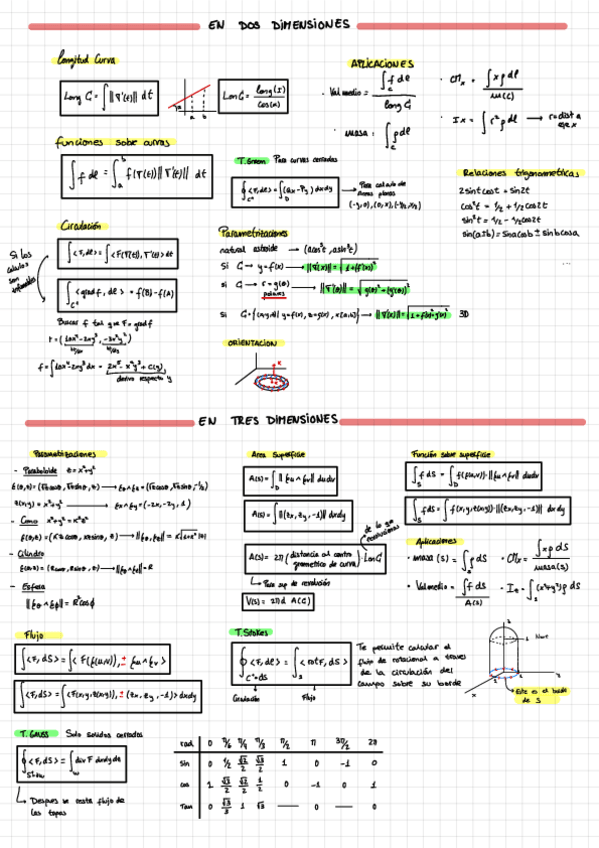 EN DOS DIMENSIONES
Longitud Curva
Long C = ∫ ||∇'(t)|| dt
a b
Lon C = long(I) / cos(α)
APLICACIONES
· Val medio = ∫_C f dl / long C
· masa = ∫_C ρ dl
· CM_x = ∫ xρ dl / m(C)
· I_x = ∫_C r² ρ dl → r = dist a eje x
funciones sobre curvas
∫_C f dl = ∫_a^b f(∇(t)) ||∇'(t)|| dt
T. Green Para curvas cerradas
Para calculo de
Areas planas
(-y,0), (0,x), (-y/2, x/2)
Relaciones trigonometricas
2 sint cost = sin2t
cos²t = 1/2 + 1/2 cos2t
sin²t = 1/2 - 1/2 cos2t
sin(a±b) = sina cosb ± sinb cosa
...
Circulación
∫ <F, dl> = ∫ <F(∇(t)), ∇'(t)> dt
Si los
calculos
son
∫_C <grad f, dl> = f(B) - f(A)
Buscar f tal que F = grad f
derivo respecto y
Parametrizaciones
natural astroide → (a cos³t, a sin³t)
Si C → y = f(x) → ||∇'(x)|| = √(1 + (f'(x))²)
Si C → r = g(θ) → ||∇'(θ)|| = √(g(θ)² + (g'(θ))²)
polares
3D
ORIENTACION
EN TRES DIMENSIONES
Parametrizaciones
- Paraboloide z = x² + y²
z(x,y) = x² + y² → ξx ∧ ξy = (-2x, -2y, 1)
- Cono
- Cilindro
f(θ,z) = (R cosθ, R sinθ, z) → ||ξθ ∧ ξz|| = R
- Esfera
||ξθ ∧ ξϕ|| = R² cosϕ
Area Superficie
A(S) = ∫_D ||ξu ∧ ξv|| du dv
A(S) = ∫ ||(zx, zy, -1)|| dx dy
A(S) = 2π (distancia al centro geometrico de curva) · Lon C
de lo que
revoluciona
→ Para sup de revolución
V(S) = 2π d A(C)
Función sobre superficie
∫_S f dS = ∫_D f(f(u,v)) · ||ξu ∧ ξv|| du dv
∫_S f dS = ∫ f(x,y,z(x,y)) · ||(zx, zy, -1)|| dx dy
Aplicaciones
· masa (S) = ∫_S ρ dS
· CM_x = ∫ xρ dS / masa(S)
· Val medio = ∫ f dS / A(S)
· I_z = ∫_S (x² + y²) ρ dS
Flujo
∫ <F, dS> = ∫ <F(f(u,v)), ± ξu ∧ ξv>
∫ <F, dS> = ∫ <F(x,y,z(x,y)), ± (zx, zy, -1)> dx dy
T. Stokes
∫_{C=∂S} <F, dl> = ∫_S <rot F, dS>
Circulación Flujo
Te permite calcular el
flujo de rotacional a traves
de la circulación del
campo sobre su borde
x
Este es el borde
de S
T. GAUSS Solo solidos cerrados
∫ <F, dS> = ∫_W div F dx dy dz
→ Despues se resta flujo de
las tapas
rad 0 π/6 π/4 π/3 π/2 π 3π/2 2π
sin 0 1/2 √2/2 √3/2 1 0 -1 0
cos 1 √3/2 √2/2 1/2 0 -1 0 1
Tan 0 √3/3 1 √3 — 0 — 0